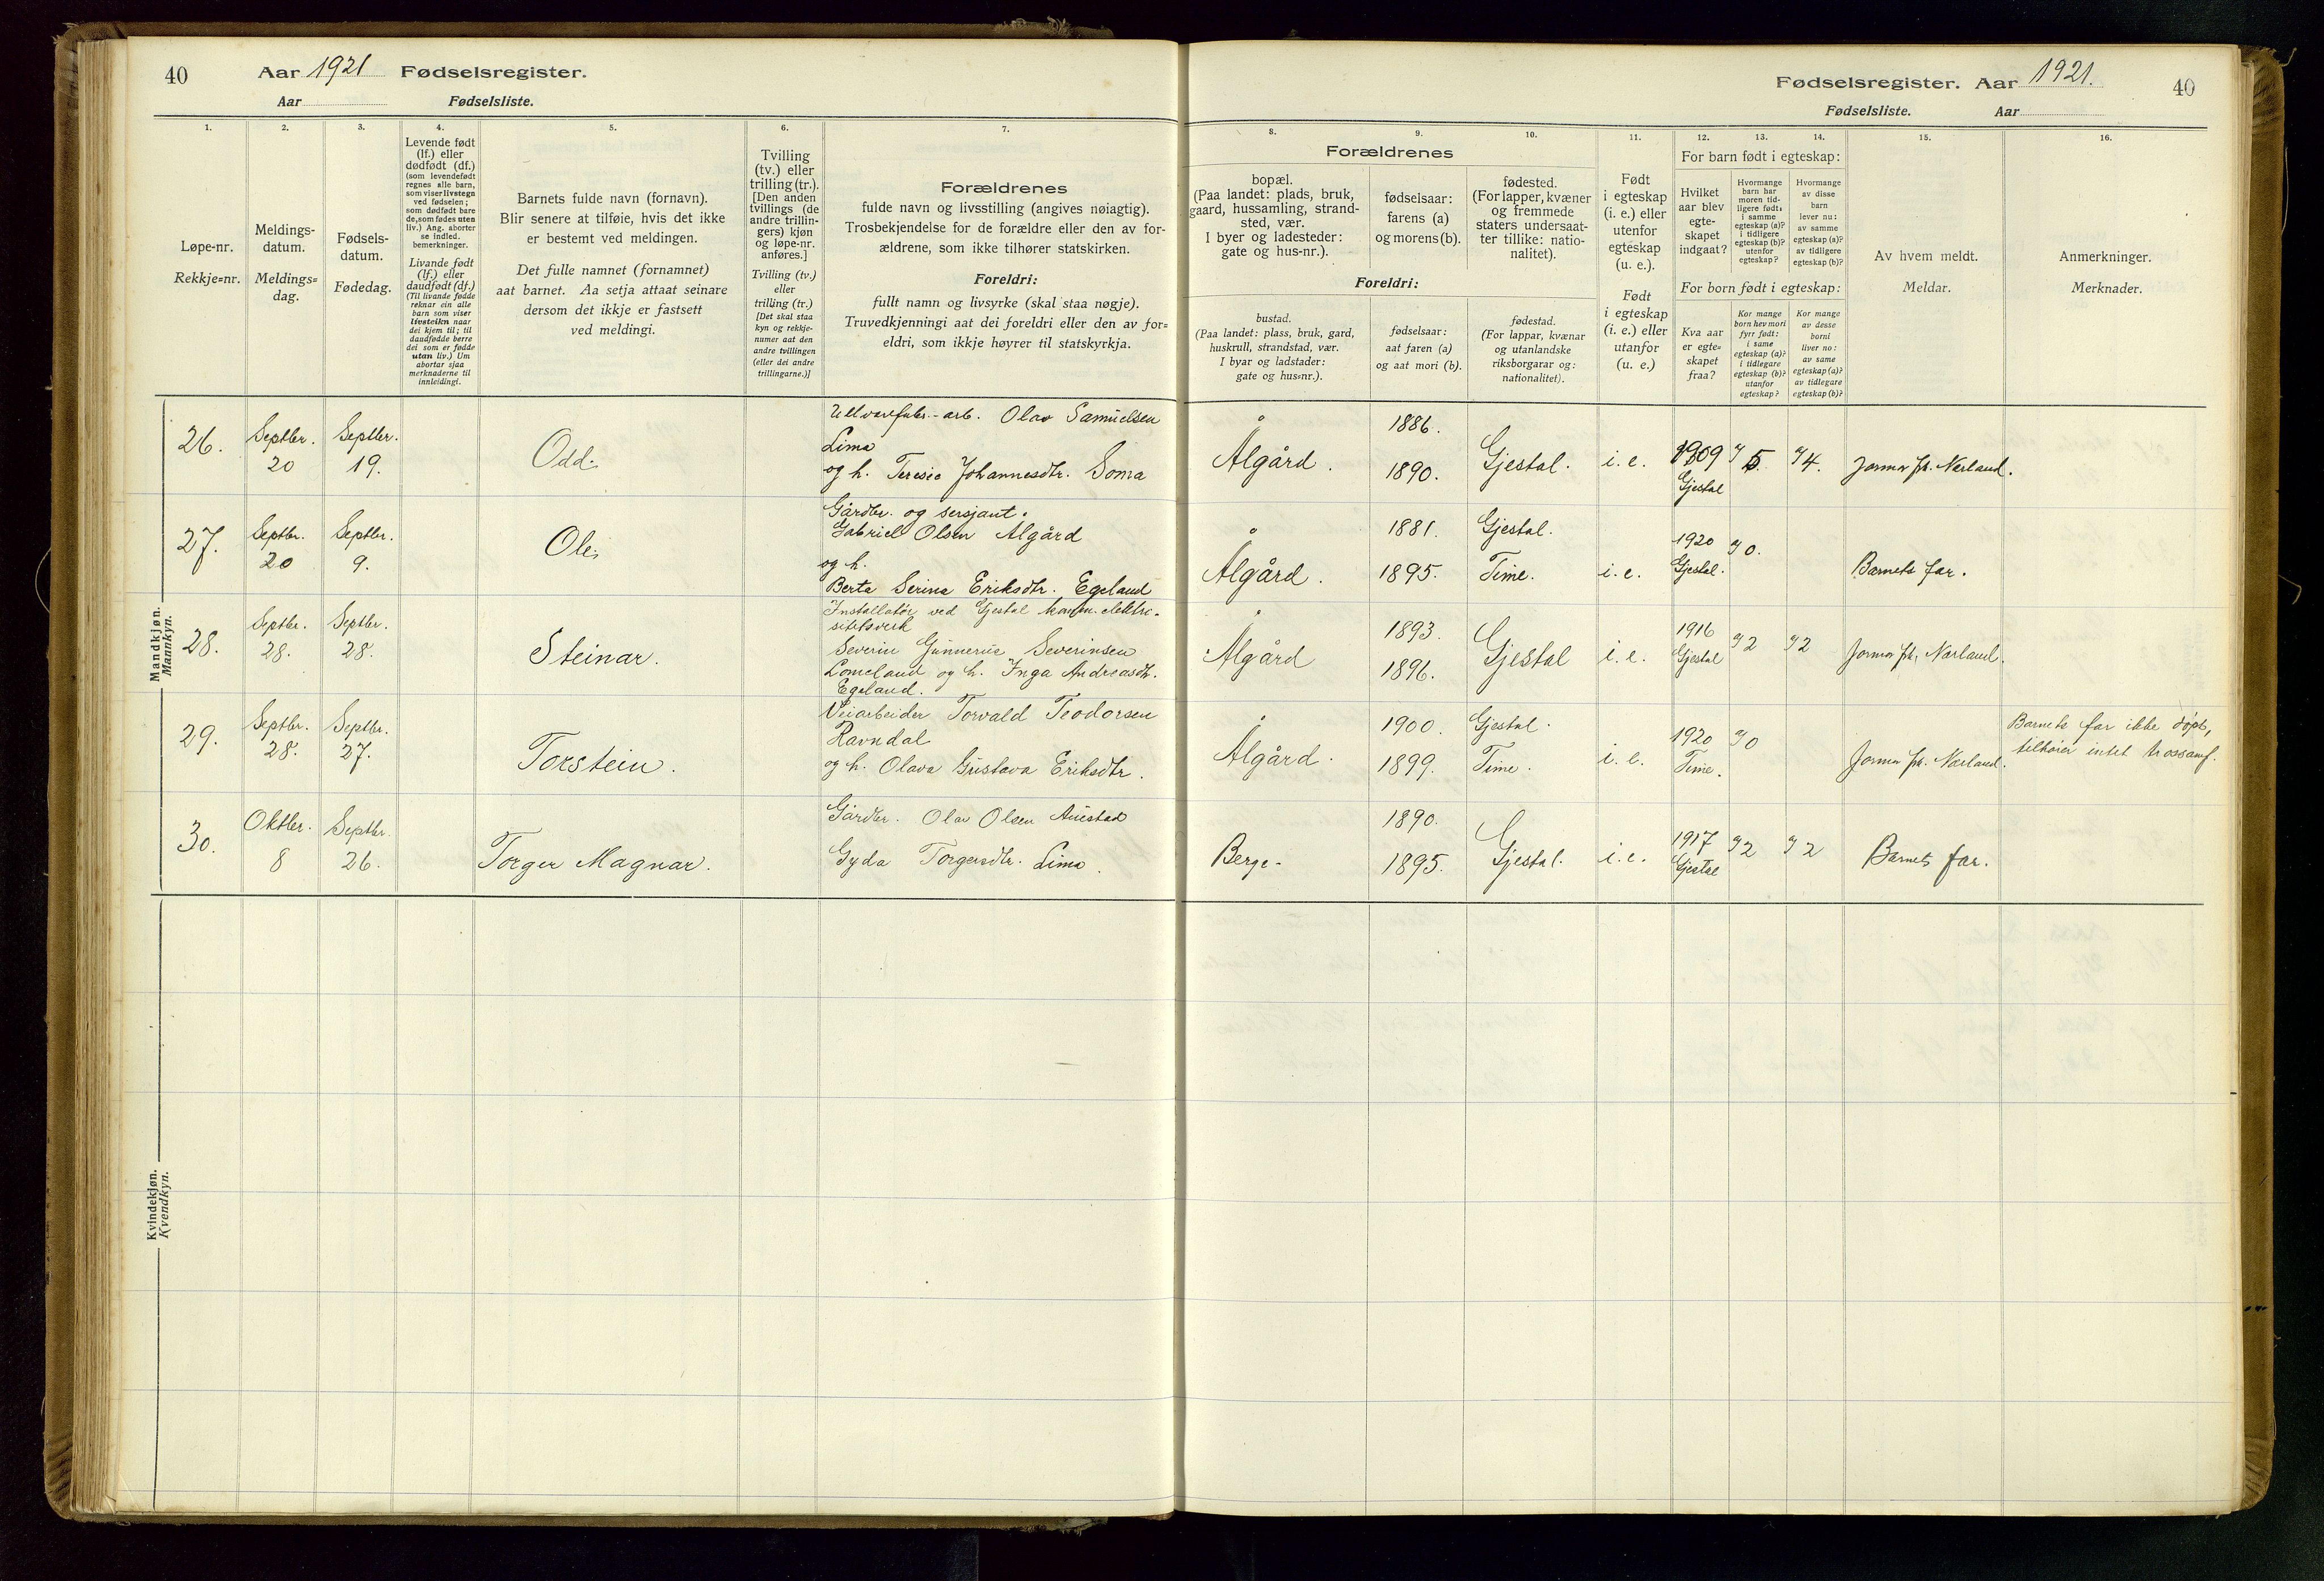 40 Aar 1921 Fødselsregister.
Aar Fødselsliste.
1.
Løpe-nr.
Rekkje=nr.
2.
Meldings-
datum.
Meldings=
dag.
3.
Fødsels-
datum.
Fødedag.
4.
Levende født
(lf.) eller
dødfødt (df.)
(som levendefødt
regnes alle barn,
som viser livstegn
ved fødselen;
som dødfødt bare
de, som fødes uten
liv.) Ang. aborter
se indled.
bemerkninger.
Livande født
(lf.) eller
daudfødt (df.)
(Til livande fødde
reknar ein alle
barn som viser
livsteikn naar
dei kjem til; til
daudfødde berre
dei som er fødde
utan liv.) Um
abortar sjaa
merknaderne til
innleidingi.
5.
Barnets fulde navn (fornavn).
Blir senere at tilføie, hvis det ikke
er bestemt ved meldingen.
Det fulle namnet (fornamnet)
aat barnet. Aa setja attaat seinare
dersom det ikkje er fastsett
ved meldingi.
6.
Tvilling
(tv.) eller
trilling (tr.).
[Den anden
tvillings (de
andre trillin-
gers) kjøn
og løpe-nr.
anføres.]
Tvilling (tv.)
eller
trilling (tr.)
[Det skal staa
kyn og rekkje-
numer aat den
andre tvillingen
(eller dei andre
trillingarne.)]
7.
Forældrenes
fulde navn og livsstilling (angives nøiagtig).
Trosbekjendelse for de forældre eller den av for-
ældrene, som ikke tilhører statskirken.
Foreldri:
fullt namn og livsyrke (skal staa nøgje).
Truvedkjenningi aat dei foreldri eller den av for=
eldri, som ikkje høyrer til statskyrkja.
Mandkjøn.
Mannkyn.
26. Septbr. 20 Septbr. 19. Odd.
Uldvarefabr.-arb. Olav Samuelsen
Lima
og h. Teresie Johannesdtr. Soma
27. Septbr. 20 Septbr. 9. Ole.
Gårdbr. og sersjant.
Gabriel Olsen Ålgård
og h.
Berta Serina Eriksdtr. Egeland
28. Septbr. 28. Septbr. 28. Steinar.
Installatør ved Gjestal komm. elektri-
sitetsverk
Severin Gunnerius Severinsen
Lomeland og h. Inga Andreasdtr.
Egeland.
29. Septbr. 28. Septbr. 27. Torstein.
Veiarbeider Torvald Teodorsen
Ravndal
og h. Olava Gustava Eriksdtr.
30. Oktbr. 8 Septbr. 26. Torger Magnar.
Gårdbr. Olav Olsen Auestad
Gyda Torgersdtr. Lima.
Kvindekjøn.
Kvendkyn.
Fødselsregister. Aar 1921. 40
Fødselsliste. Aar
8.
Forældrenes
bopæl.
(Paa landet: plads, bruk,
gaard, hussamling, strand-
sted, vær.
I byer og ladesteder:
gate og hus-nr.).
Foreldri:
bustad.
(Paa landet: plass, bruk, gard,
huskrull, strandstad, vær.
I byar og ladstader:
gate og hus=nr.).
9.
fødselsaar:
farens (a)
og morens (b).
fødselsaar:
aat faren (a)
og aat mori (b).
10.
fødested.
(For lapper, kvæner
og fremmede
staters undersaat-
ter tillike: natio-
nalitet).
fødestad.
(For lappar, kvænar
og utanlandske
riksborgarar og:
nationalitet).
11.
Født
i egteskap
(i. e.) eller
utenfor
egteskap
(u. e.).
Født
i egteskap
(i. e.) eller
utanfor
(u. e.)
12. 13. 14.
For barn født i egteskap:
Hvilket
aar blev
egte-
skapet
indgaat?
Hvormange
barn har
moren tid-
ligere født:
i samme
egteskap (a)?
i tidligere
egteskap (b)?
utenfor
egteskap?
Hvormange
av disse
barn
lever nu:
av samme
egteskap (a)?
av tidligere
egteskap (b)?
For born født i egteskap:
Kva aar
er egte=
skapet
fraa?
Kor mange
born hev mori
fyrr født:
i same
egteskap (a)?
i tidlegare
egteskap (b)?
utanfor
egteskap?
Kor mange
av desse
borni
liver no:
av same
egteskap (a)?
av tidlegare
egteskap (b)?
15.
Av hvem meldt.
Meldar.
16.
Anmerkninger.
Merknader.
Ålgård. 1886. 1890. Gjestal. i. e. 1909 Gjestal a) 5. a) 4. Jormor fr. Nærland.
Ålgård. 1881. Gjestal. 1895. Time. i. e. 1920 Gjestal. a) 0. Barnets far.
Ålgård 1893. 1896. Gjestal i. e. 1916 Gjestal a) 2 a) 2 Jormor fr. Nærland.
Ålgård. 1900. Gjestal. 1899. Time. i. e. 1920 Time. a) 0 Jormor fr. Nærland.
Barnets far ikke døpt,
tilhører intet trossamf.
Berge. 1890. 1895. Gjestal. i. e. 1917 Gjestal a) 2 a) 2 Barnets far.